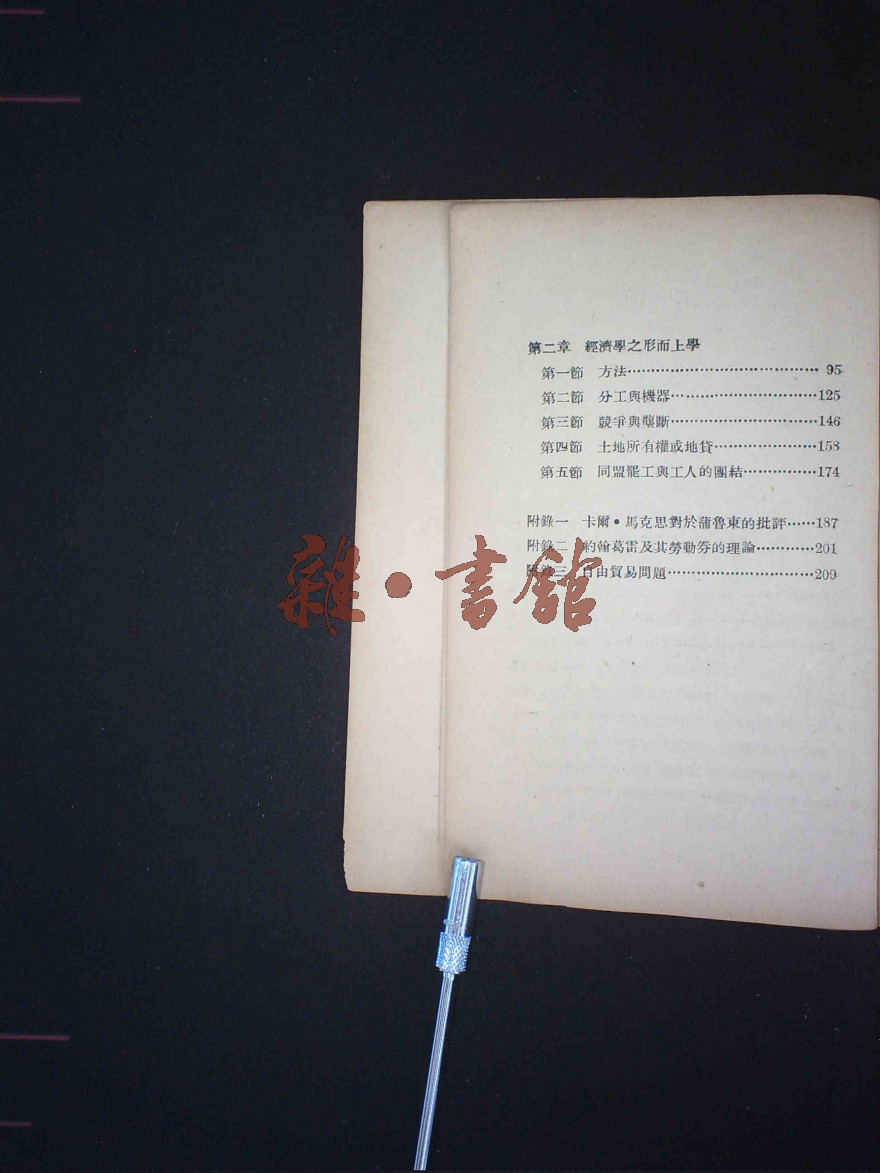 第二章 經濟學之形而上學
第一節 方法…………………………………… 95
第二節 分工與機器……………………………125
第三節 競爭與壟斷……………………………146
第四節 土地所有權或地貸……………………158
第五節 同盟罷工與工人的團結……………174
附錄一 卡爾•馬克思對於蒲魯東的批評……187
附錄二 約翰葛雷及其勞動券的理論…………201
附錄三 自由貿易問題…………………………209
雜•書館